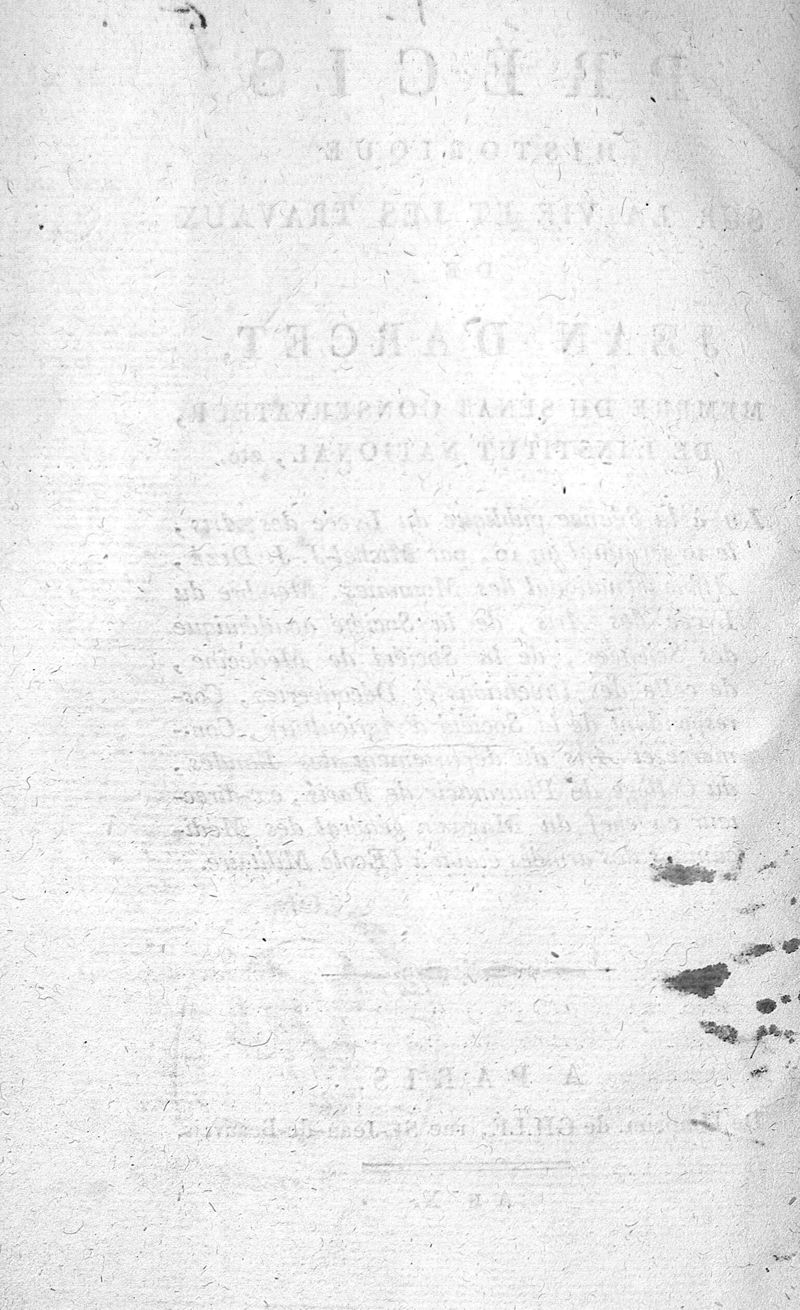 PRÉCIS
HISTORIQUE
SUR LA VIE ET LES TRAVAUX
DE
JEAN D'ARCET,
MEMBRE DU SÉNAT CONSERVATEUR,
DE L'INSTITUT NATIONAL, etc.
Lu à la Séance publique du Lycée des Arts,
le 10 germinal an 10, par Michel-J.-J. Dizé,
national des Monnaies, Membre du
Lycée des Arts, de la Société académique
des Sciences, de la Société de Médecine,
de celle des Inventions et Découvertes, Cor-
respondant de la Société d'Agriculture, Com-
merce et Arts du département des Landes,
du Collège de Pharmacie de Paris, ex-direc-
teur en chef du Magasin général des Médi-
camens des armées, établi à l'École Militaire.
A PARIS.
De l'Imprim. de GILLÉ, rue St.-Jean-de-Beauvais.
AN X.